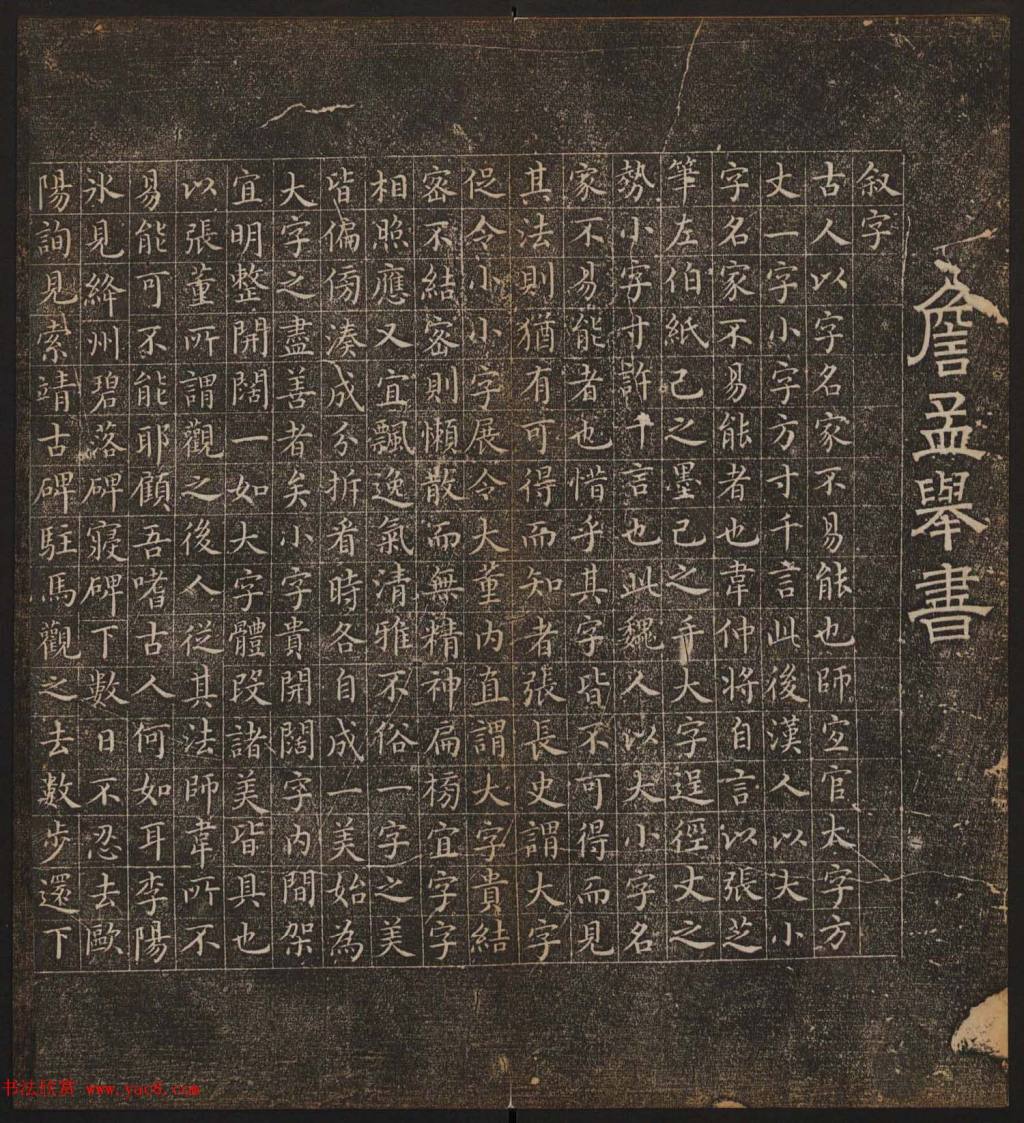 詹孟舉書
叙字
古人以字名家不易能也師宜官大字方
丈一字小字方寸千言此後漢人以大小
字名家不易能者也韋仲將自言以張芝
筆左伯紙己之墨己之手大字逞徑丈之
勢小字寸許千言也此魏人以大小字名
家不易能者也惜乎其字皆不可得而見
其法則猶有可得而知者張長史謂大字
促令小小字展令大董内直謂大字貴結
宻不結宻則懶散而無精神扁榜宜字字
相照應又宜飄逸氣清雅不俗一字之美
皆偏傍湊成分拆看時各自成一美始為
大字之盡善者矣小字貴開闊字内間架
宜明整開闊一如大字體段諸美皆具也
以張董所謂觀之後人從其法師韋所不
易能可不能耶顧吾嗜古人何如耳李陽
氷見絳州碧落碑寢碑下數日不忍去歐
陽詢見索靖古碑駐馬觀之去數步還下
书法欣赏 www.yac8.com